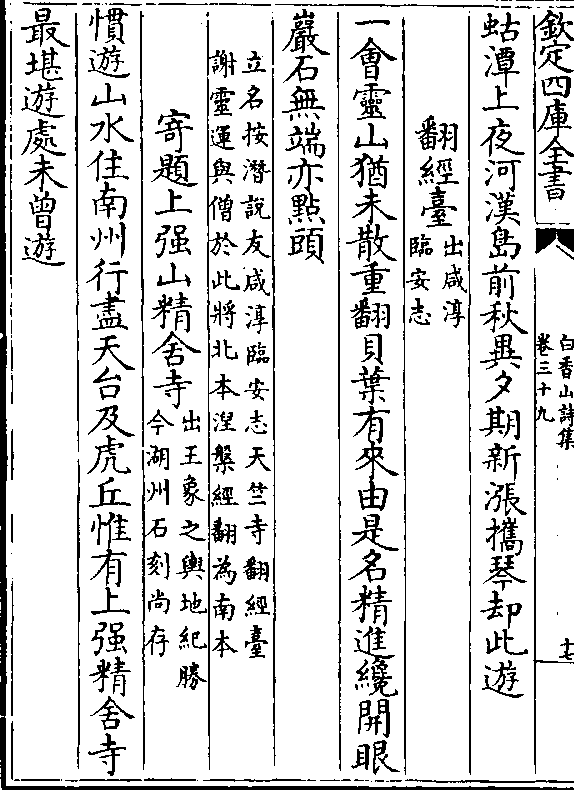 欽定四庫全書
白香山詩集
卷三十九
十七
蛄潭上夜河漢島前秋異夕期新漲攜琴却此遊
翻經臺
出咸淳
臨安志
一會靈山猶未散重翻貝葉有來由是名精進纔開眼
巖石無端亦點頭
立名按潛說友咸淳臨安志天竺寺翻經臺
謝靈運與僧於此將北本湼槃經翻為南本
寄題上强山精舍寺
出王象之輿地紀勝
今湖州石刻尚存
慣遊山水住南州行盡天台及虎丘惟有上强精舍寺
最堪遊處未曾遊